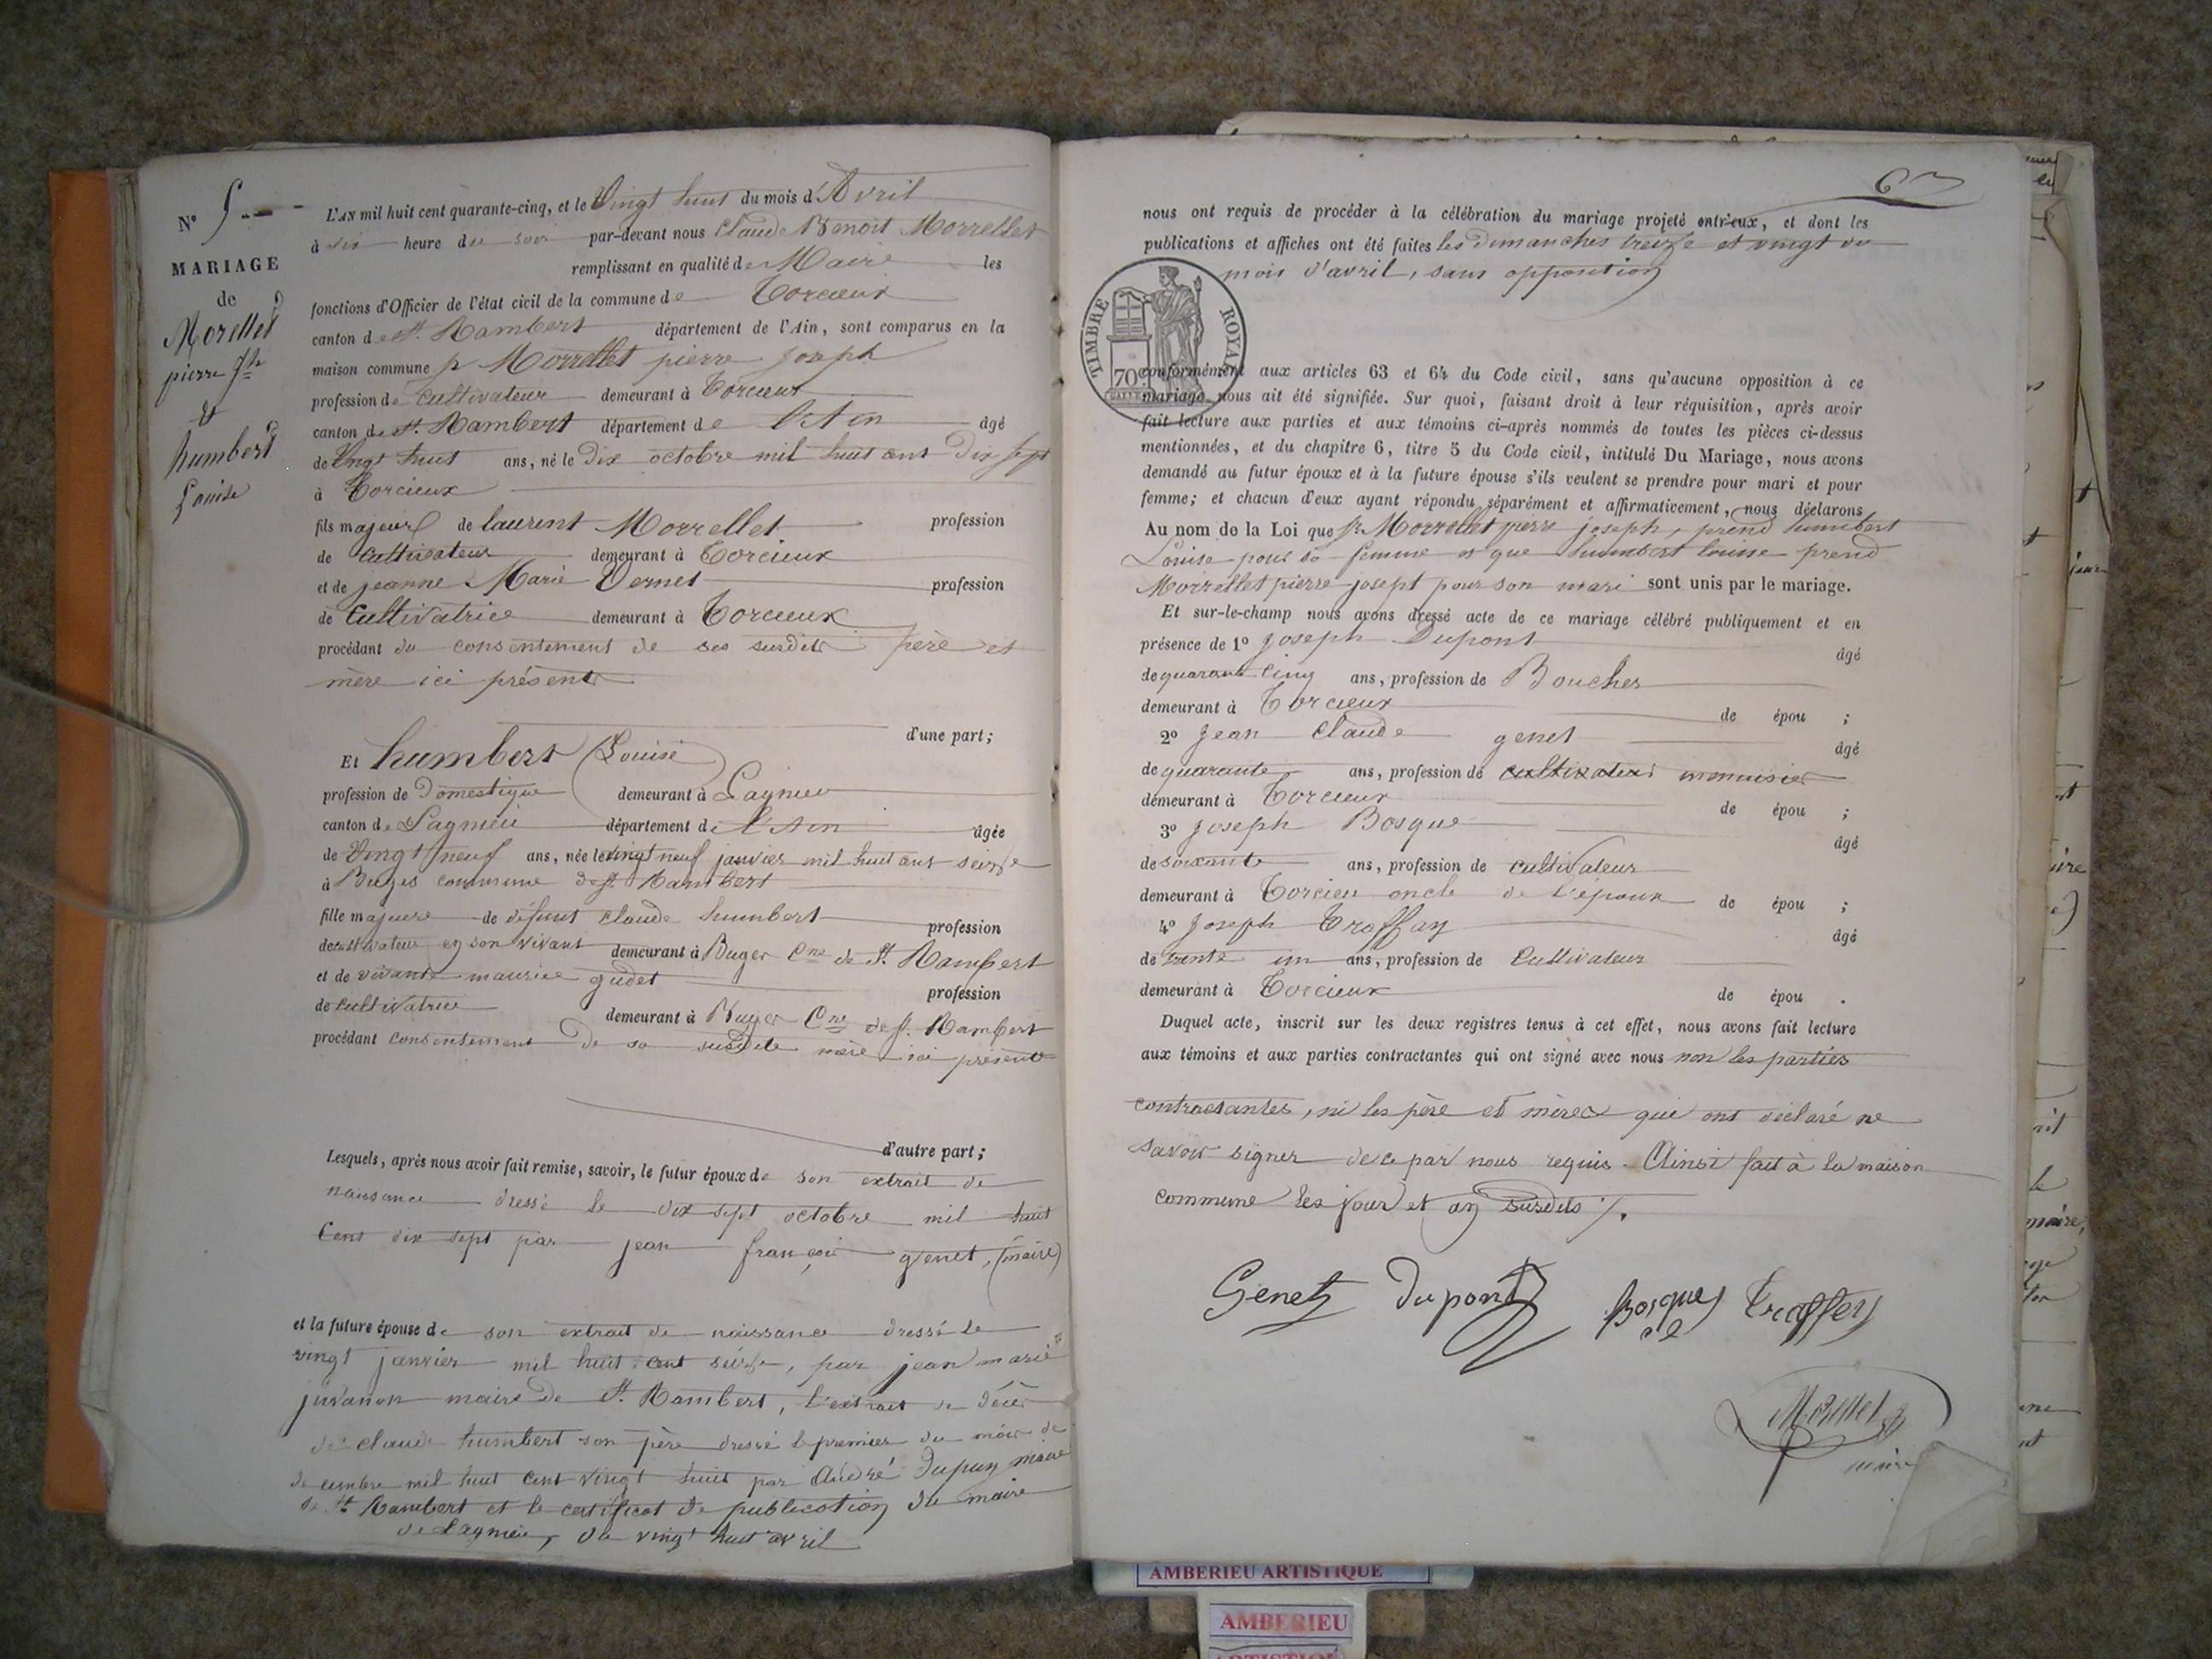 N° 5
MARIAGE
de
Morellet
pierre Jh
et
humbert
Louise
L'AN mil huit cent quarante-cinq, et le Vingt huit du mois d'Avril
à six heure du soir par-devant nous Claude Benoit Morrellet
remplissant en qualité de Maire les
fonctions d'Officier de l'état civil de la commune de Torcieux
canton de St. Rambert département de l'Ain, sont comparus en la
maison commune Morrellet pierre Joseph
profession de Cultivateur demeurant à Torcieux
canton de St. Rambert département de l'Ain âgé
de Vingt huit ans, né le Dix octobre mil huit cent Dix sept
à Torcieux
fils majeur de laurent Morrellet profession
de Cultivateur demeurant à Torcieux
et de jeanne Marie Vernet profession
de Cultivatrice demeurant à Torcieux
procédant du consentement de ses susdits père et
mère ici présents
d'une part;
Et humbert Louise
profession de Domestique demeurant à Lagnieu
canton de Lagnieu département de l'Ain âgée
de Vingt neuf ans, née le vingt neuf janvier mil huit cent seize
à Buges commune de St. Rambert
fille majeure de défunt Claude humbert profession
de cultivateur en son vivant demeurant à Buges Cne de St. Rambert
et de vivante maurice gudet profession
de Cultivatrice demeurant à Buges Cne de St. Rambert
procédant consentement De sa susdite mère ici présente
d'autre part;
Lesquels, après nous avoir fait remise, savoir, le futur époux de son extrait de
naissance dressé le dix sept octobre mil huit
Cent dix sept par jean françois genet, (maire)
et la future épouse de son extrait de naissance dressé le
vingt janvier mil huit cent seize, par jean marie
juvanon maire de St. Rambert, l'extrait de décès
de claude humbert son père dressé le premier du mois de
décembre mil huit cent vingt huit par André Dupuy maire
de St Rambert et le certificat de publication du maire
de Lagnieu, du vingt huit avril
6
nous ont requis de procéder à la célébration du mariage projeté entr'eux, et dont les
publications et affiches ont été faites les Dimanches treize et vingt du
mois d'avril, sans opposition
TIMBRE ROYAL
70c
conformément aux articles 63 et 64 du Code civil, sans qu'aucune opposition à ce
mariage nous ait été signifiée. Sur quoi, faisant droit à leur réquisition, après avoir
fait lecture aux parties et aux témoins ci-après nommés de toutes les pièces ci-dessus
mentionnées, et du chapitre 6, titre 5 du Code civil, intitulé Du Mariage, nous avons
demandé au futur époux et à la future épouse s'ils veulent se prendre pour mari et pour
femme; et chacun d'eux ayant répondu séparément et affirmativement, nous déclarons
Au nom de la Loi que Morrellet pierre joseph, prend humbert
Louise pour sa femme et que humbert louise prend
Morrellet pierre josept pour son mari sont unis par le mariage.
Et sur-le-champ nous avons dressé acte de ce mariage célébré publiquement et en
présence de 1° Joseph Dupont âgé
de quarante Cinq ans, profession de Boucher
demeurant à Torcieux de épou ;
2° Jean Claude genet âgé
de quarante ans, profession de cultivateur menuisier
demeurant à Torcieux de épou ;
3° Joseph Bosque âgé
de soixante ans, profession de cultivateur
demeurant à Torcieu oncle de l'époux de épou ;
4° Joseph Troffay âgé
de trente un ans, profession de Cultivateur
demeurant à Torcieux de épou .
Duquel acte, inscrit sur les deux registres tenus à cet effet, nous avons fait lecture
aux témoins et aux parties contractantes qui ont signé avec nous non les parties
contractantes, ni les père et mères qui ont déclaré ne
savoir signer de ce par nous requis. Ainsi fait à la maison
commune les jour et an susdits /.
Genet Dupont Bosque Traffey
Morellet
maire
AMBERIEU ARTISTIQUE
AMBERIEU
ARTISTIQUE